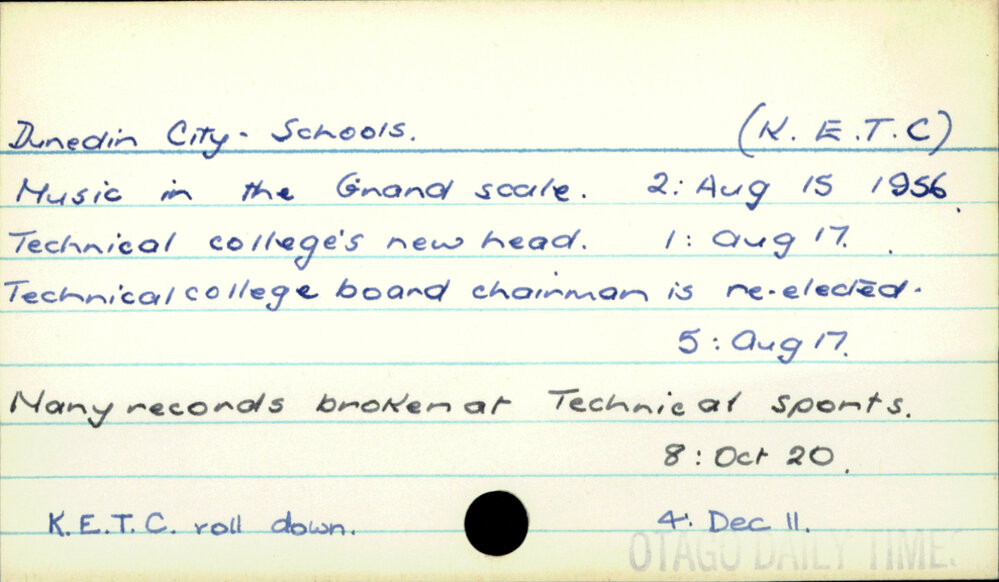 Dunedin City - Schools. (K. E.T.C)
Music in the Grand scale. 2: Aug 15 1956.
Technical college's new head. 1: Aug 17.
Technical college board chairman is re-elected.
5: Aug 17.
Many records broken at Technical sports.
8: Oct 20.
K.E.T.C. roll down. 4: Dec 11.
OTAGO DAILY TIMES